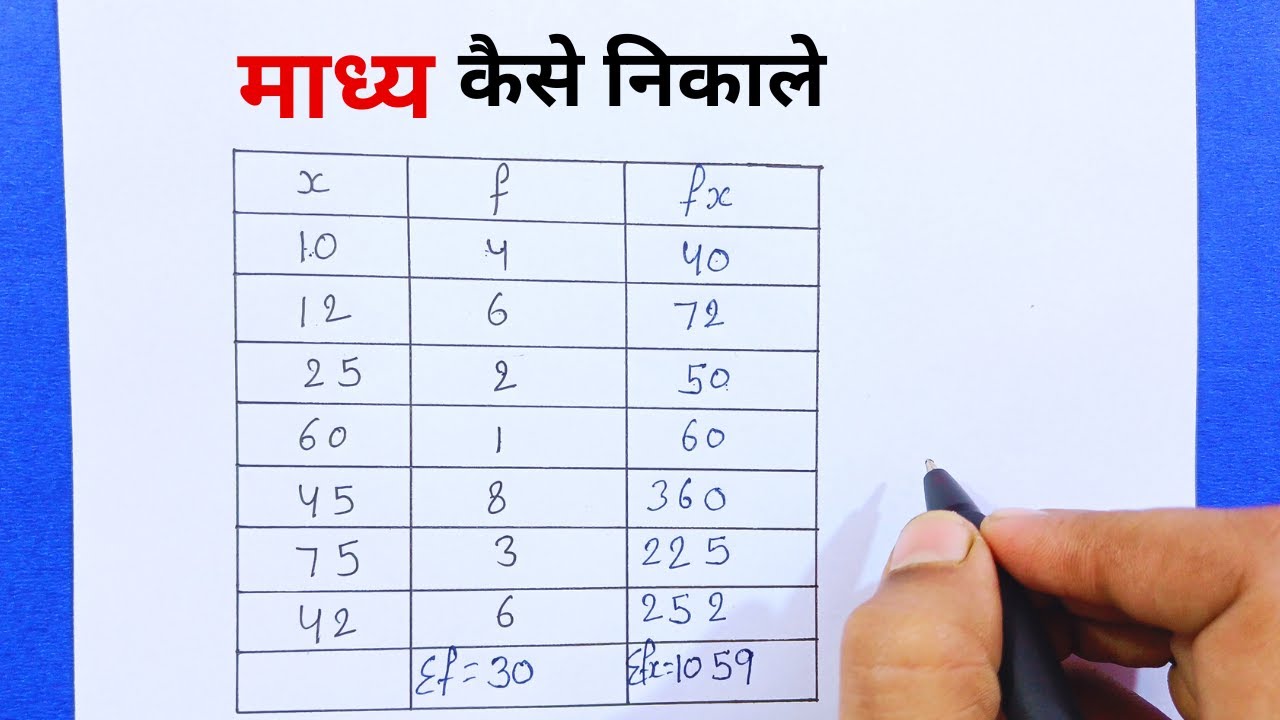 माध्य कैसे निकाले
x f fx
10 4 40
12 6 72
25 2 50
60 1 60
45 8 360
75 3 225
42 6 252
Σf = 30 Σfx = 1059